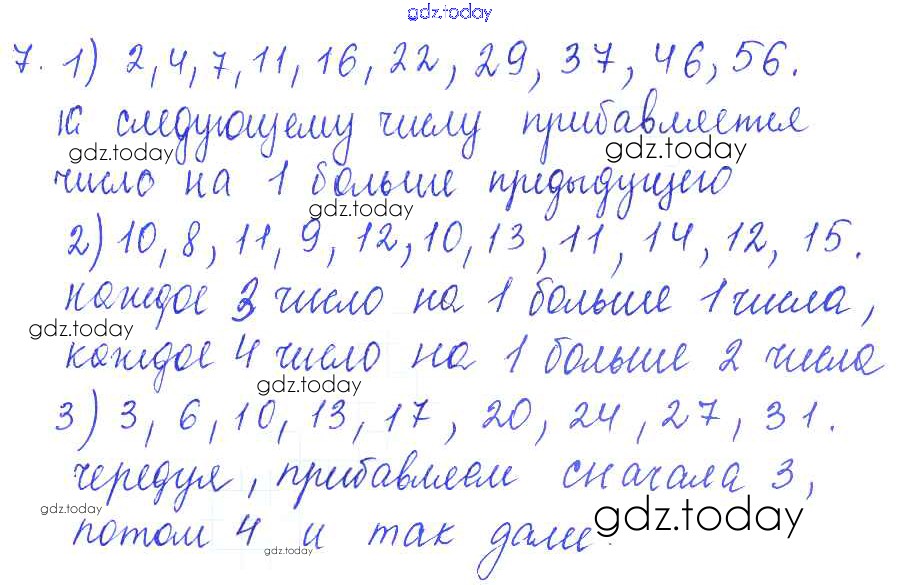 gdz.today
7. 1) 2, 4, 7, 11, 16, 22, 29, 37, 46, 56.
К следующему числу прибавляется
gdz.today gdz.today
число на 1 больше предыдущего
gdz.today
2) 10, 8, 11, 9, 12, 10, 13, 11, 14, 12, 15.
каждое 3 число на 1 больше 1 числа,
gdz.today
каждое 4 число на 1 больше 2 числа
gdz.today
3) 3, 6, 10, 13, 17, 20, 24, 27, 31.
чередуя, прибавляем сначала 3,
gdz.today gdz.today
потом 4 и так далее.
gdz.today